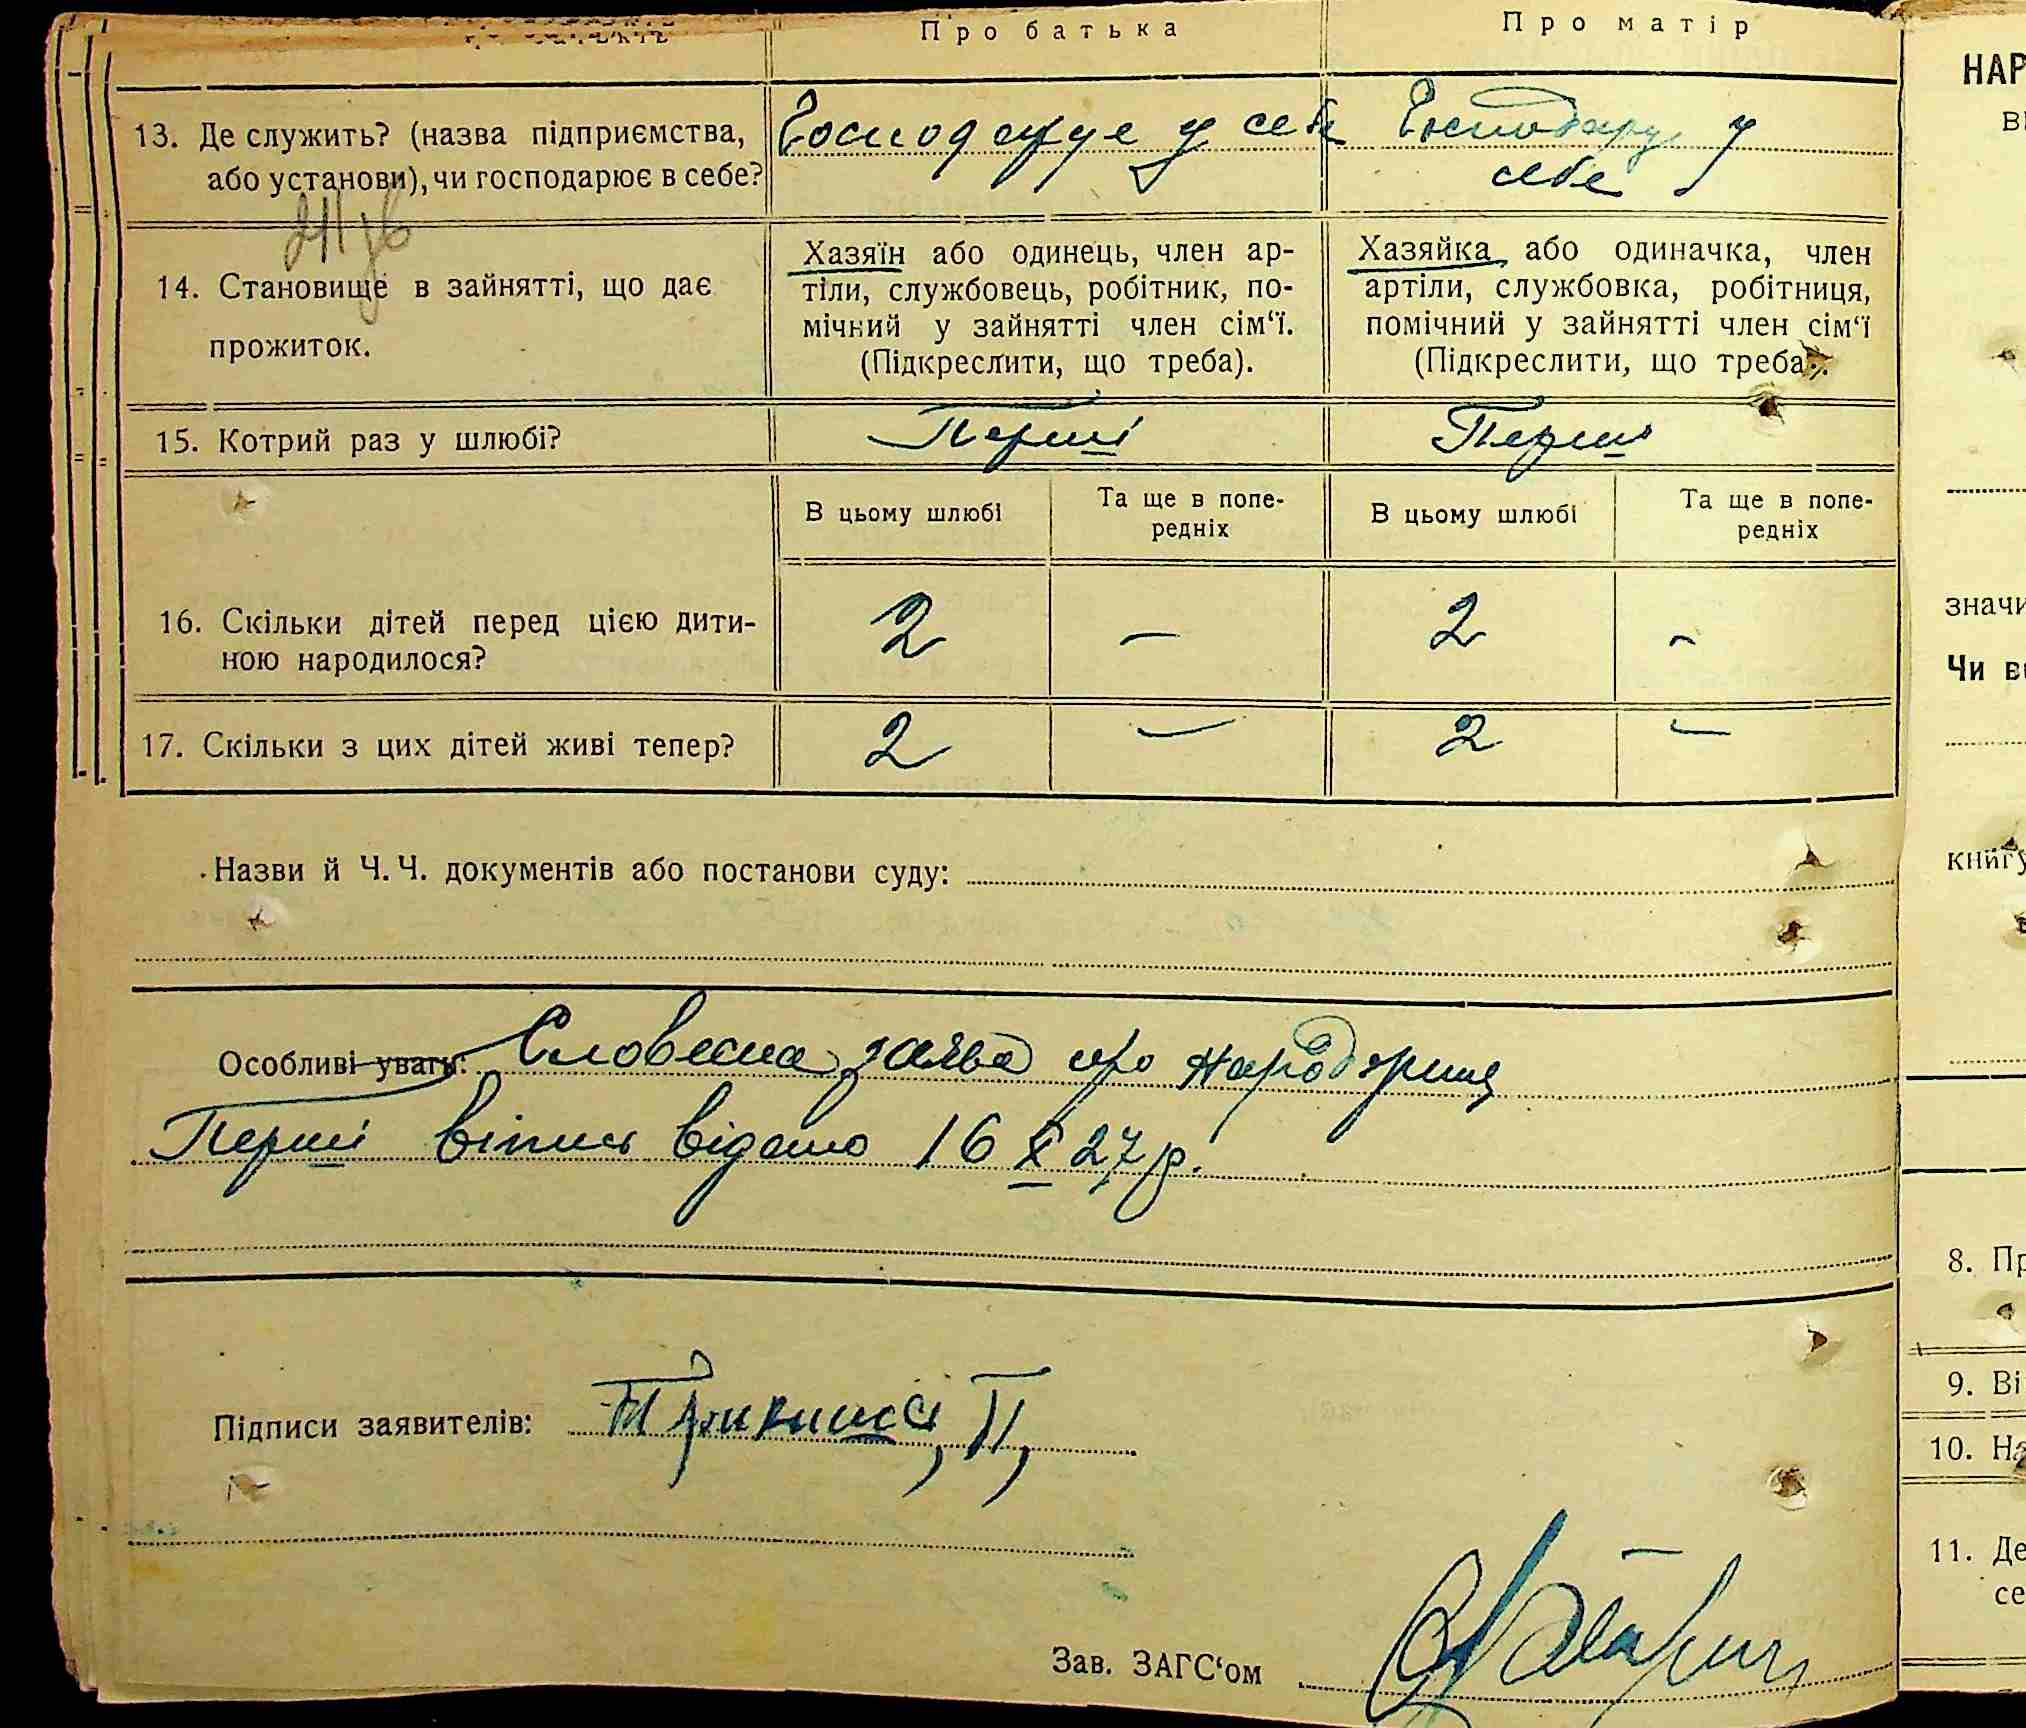 Про батька Про матір
13. Де служить? (назва підприємства, Господарує у себе Господарує у
або установи), чи господарює в себе? себе
Хазяїн або одинець, член ар- Хазяйка або одиначка, член
14. Становище в зайнятті, що дає тіли, службовець, робітник, по- артіли, службовка, робітниця,
прожиток. мічний у зайнятті член сім‘ї. помічний у зайнятті член сім‘ї
(Підкреслити, що треба). (Підкреслити, що треба).
15. Котрий раз у шлюбі? Перший Перший
В цьому шлюбі Та ще в попе- В цьому шлюбі Та ще в попе-
редніх редніх
16. Скільки дітей перед цією дити- 2 — 2 -
ною народилося?
17. Скільки з цих дітей живі тепер? 2 — 2 —
Назви й Ч.Ч. документів або постанови суду:
Особливі уваги: Словесна заява про
Перший відано 16 X 27 р.
Підписи заявителів:
Зав. ЗАГС‘ом
НАР
ві
значи
Чи в
книгу
8. Пр
9. Ві
10. На
11. Де
се